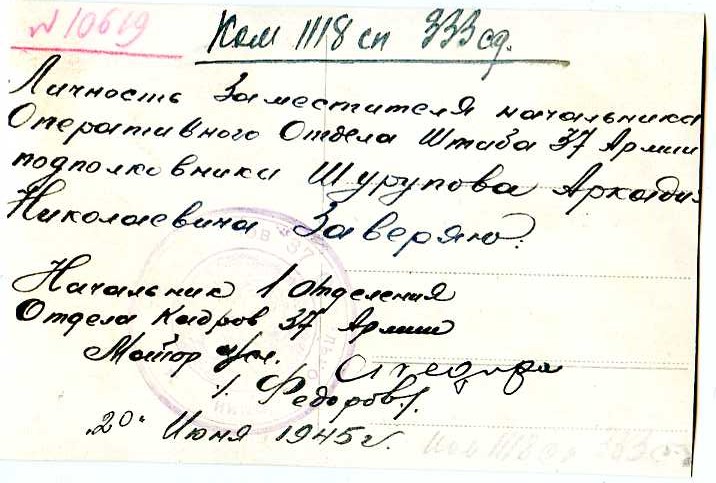 № 10619
Ком 1118 сп 333 сд.
Личность Заместителя начальника
Оперативного Отдела Штаба 37 Армии
подполковника Шурупова Аркади
Николаевича Заверяю.
Начальник 1 отделения
Отдела Кадров 37 Армии
Майор
/. Федоров/.
"20" Июня 1945 г.
Ком 1118 сп 333 сд